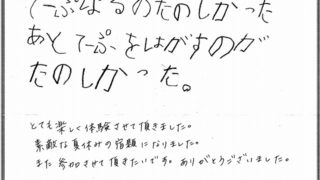 てーぷはるのたのしかった
あとてーぷをはがすのが
たのしかった。
とても楽しく体験させて頂きました。
素敵な夏休みの宿題になりました。
また参加させて頂きたいです。ありがとうございました。